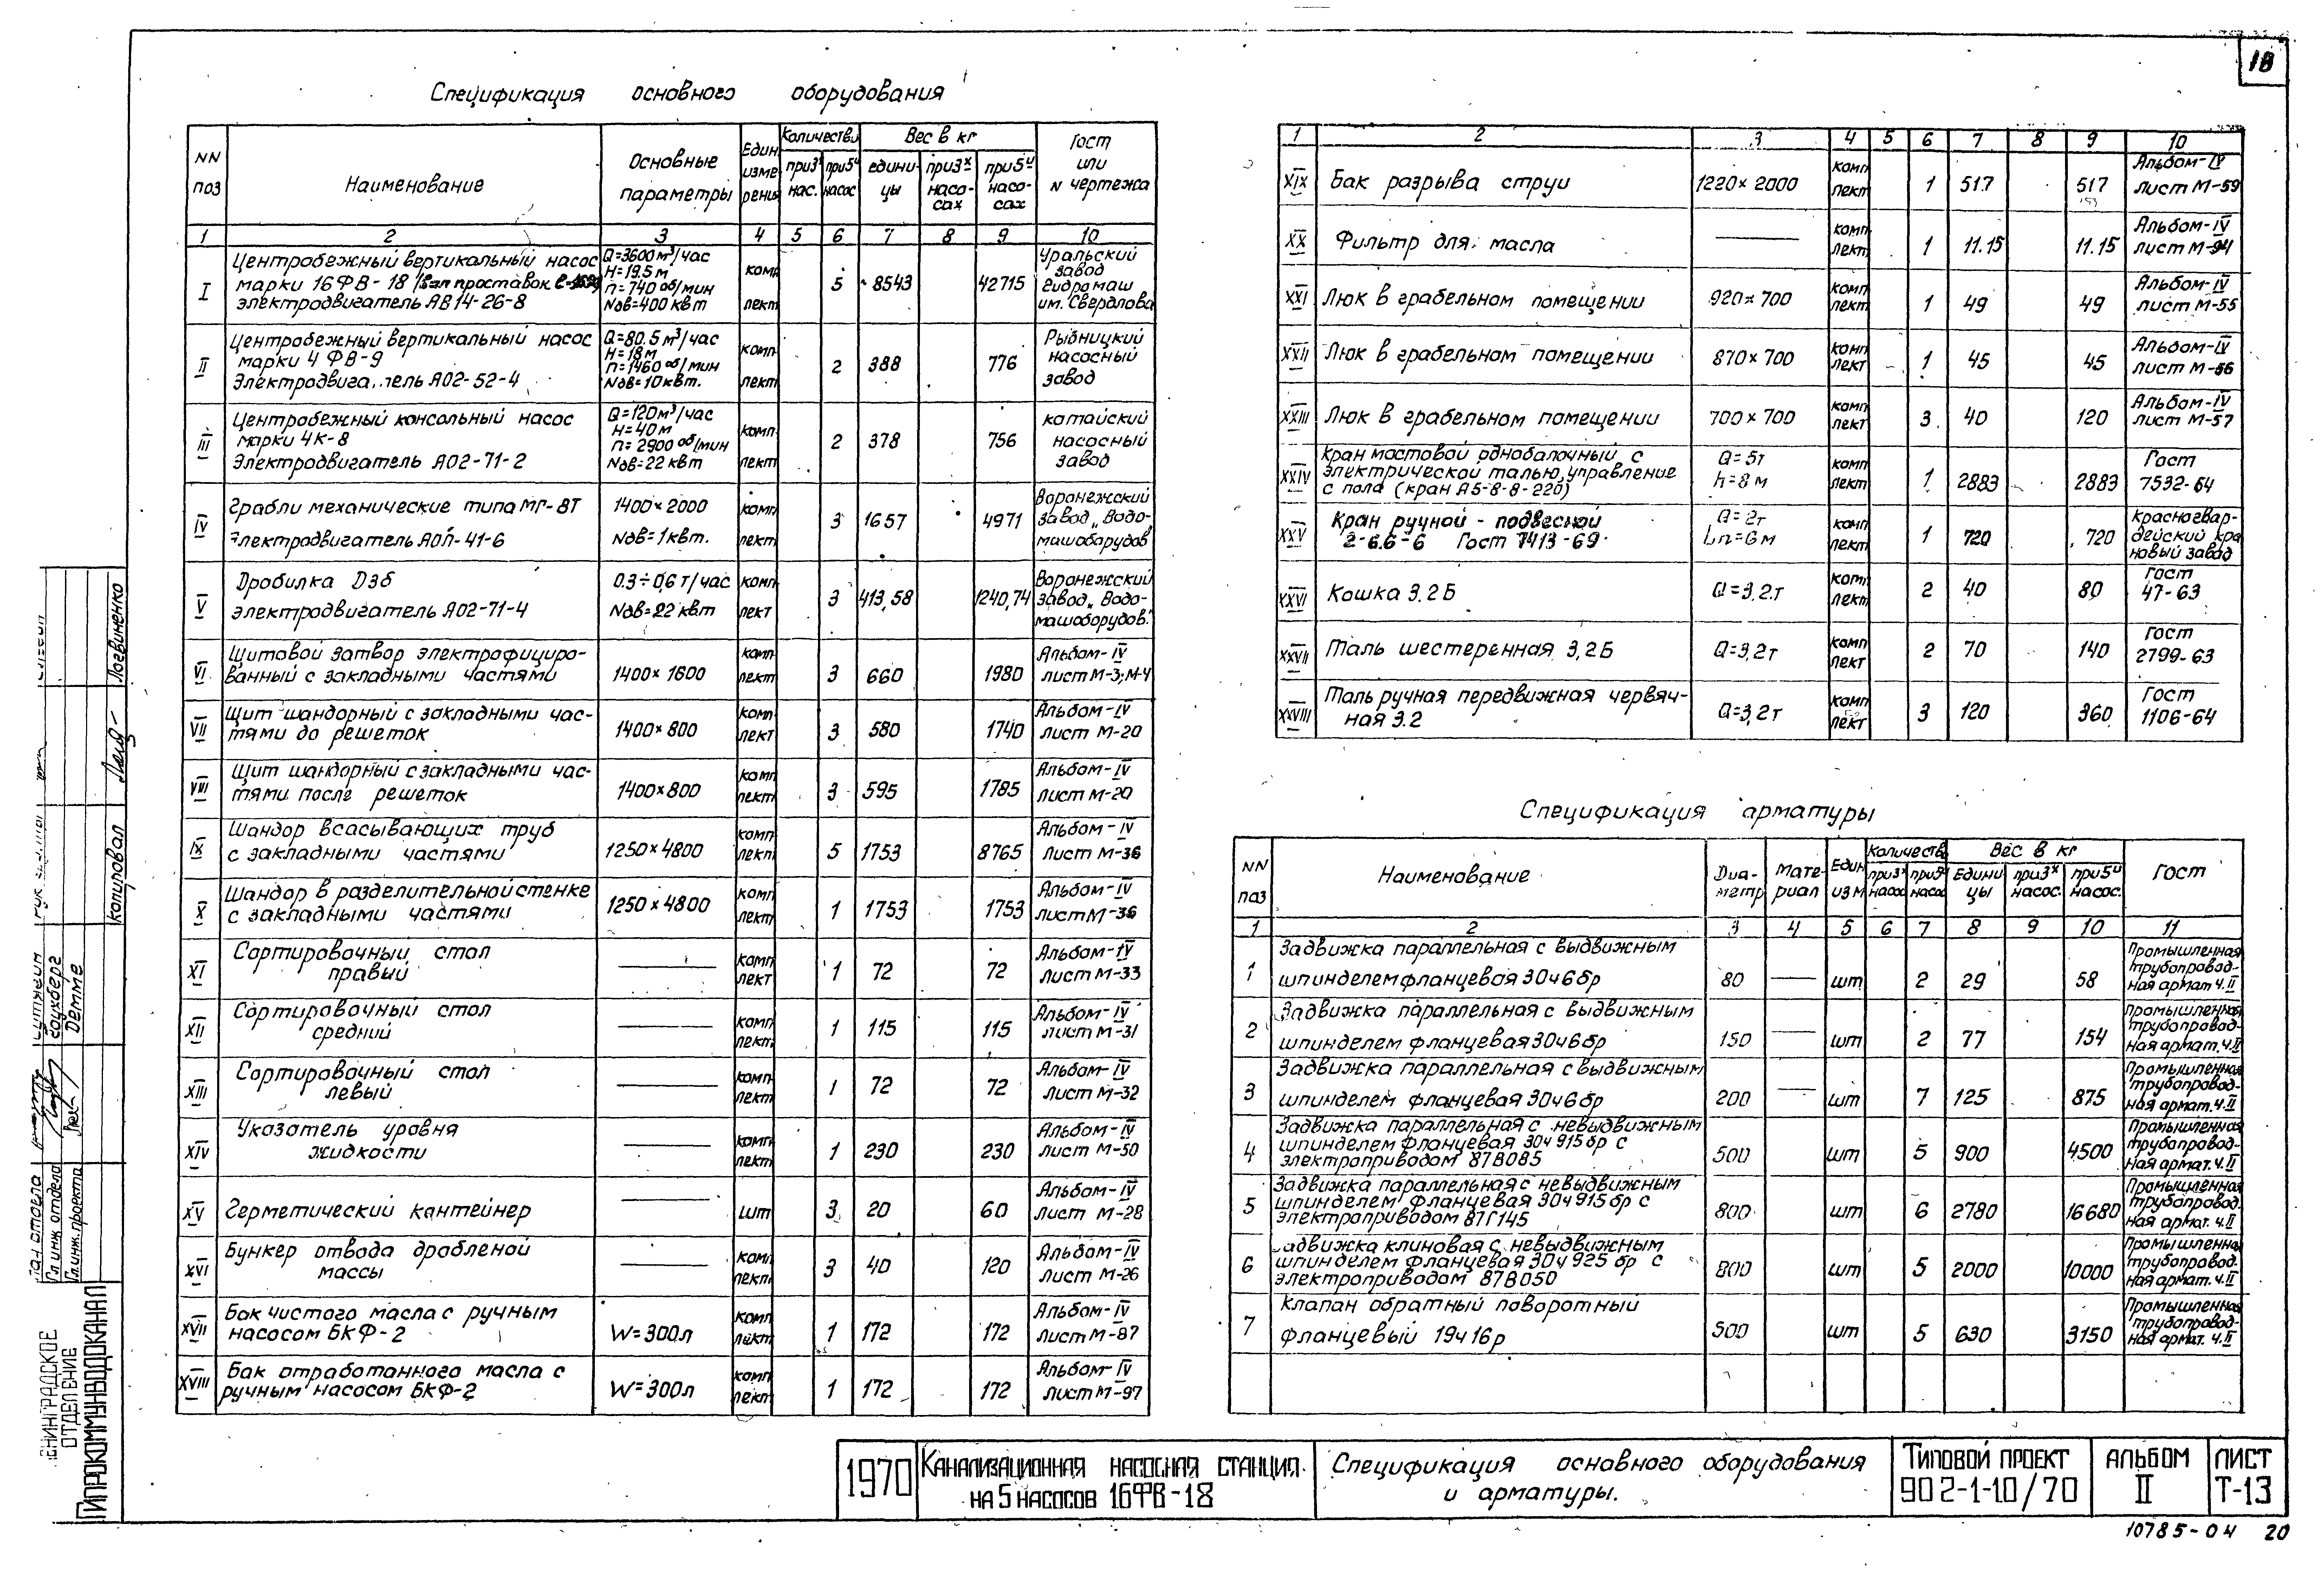 18
Спецификация основного оборудования
NN поз | Наименование | Основные параметры | Един измерения | Количество | Вес в кг | Гост или N чертежа
при3х нас. | при5и насос | единицы | при3х насосах | при5и насосах
1 | 2 | 3 | 4 | 5 | 6 | 7 | 8 | 9 | 10
I | Центробежный вертикальный насос марки 16ФВ-18 проставок электродвигатель АВ14-26-8 | Q=3600м³/час H=19.5м n=740 об/мин Nдв=400 квт | комплект | 5 | 8543 | 42715 | Уральский завод гидромаш им. Свердлова
II | Центробежный вертикальный насос марки 4ФВ-9 Электродвигатель АО2-52-4 | Q=80.5м³/час H=18м n=1460 об/мин Nдв=10квт. | комплект | 2 | 388 | 776 | Рыбницкий насосный завод
III | Центробежный консольный насос марки 4К-8 Электродвигатель АО2-71-2 | Q=120м³/час H=40м n=2900 об/мин Nдв=22 квт | комплект | 2 | 378 | 756 | Катайский насосный завод
IV | Грабли механические типа МГ-8Т Электродвигатель АОЛ-41-6 | 1400×2000 Nдв=1квт. | комплект | 3 | 1657 | 4971 | Воронежский завод „Водомашоборудов
V | Дробилка Д3б электродвигатель АО2-71-4 | 0.3÷0,6 т/час Nдв=22 квт | комплект | 3 | 413,58 | 1240,74 | Воронежский завод „Водомашоборудов."
VI | Щитовой затвор электрофицированный с закладными частями | 1400×1600 | комплект | 3 | 660 | 1980 | Альбом-IV лист М-3; М-4
VII | Щит шандорный с закладными частями до решеток | 1400×800 | комплект | 3 | 580 | 1740 | Альбом-IV лист М-20
VIII | Щит шандорный с закладными частями после решеток | 1400×800 | комплект | 3 | 595 | 1785 | Альбом-IV лист М-20
IX | Шандор всасывающих труб с закладными частями | 1250×4800 | комплект | 5 | 1753 | 8765 | Альбом-IV лист М-36
X | Шандор в разделительной стенке с закладными частями | 1250×4800 | комплект | 1 | 1753 | 1753 | Альбом-IV лист М-36
XI | Сортировочный стол правый | — | комплект | 1 | 72 | 72 | Альбом-IV лист М-33
XII | Сортировочный стол средний | — | комплект | 1 | 115 | 115 | Альбом-IV лист М-31
XIII | Сортировочный стол левый | — | комплект | 1 | 72 | 72 | Альбом-IV лист М-32
XIV | Указатель уровня жидкости | — | комплект | 1 | 230 | 230 | Альбом-IV лист М-50
XV | Герметический контейнер | — | шт | 3 | 20 | 60 | Альбом-IV лист М-28
XVI | Бункер отвода дробленой массы | — | комплект | 3 | 40 | 120 | Альбом-IV лист М-26
XVII | Бак чистого масла с ручным насосом БКФ-2 | W=300л | комплект | 1 | 172 | 172 | Альбом-IV лист М-87
XVIII | Бак отработанного масла с ручным насосом БКФ-2 | W=300л | комплект | 1 | 172 | 172 | Альбом-IV лист М-97
1 | 2 | 3 | 4 | 5 | 6 | 7 | 8 | 9 | 10
XIX | Бак разрыва струи | 1220×2000 | комплект | 1 | 517 | 517 | Альбом-IV лист М-59
XX | Фильтр для масла | — | комплект | 1 | 11.15 | 11.15 | Альбом-IV лист М-94
XXI | Люк в грабельном помещении | 920×700 | комплект | 1 | 49 | 49 | Альбом-IV лист М-55
XXII | Люк в грабельном помещении | 870×700 | комплект | 1 | 45 | 45 | Альбом-IV лист М-56
XXIII | Люк в грабельном помещении | 700×700 | комплект | 3 | 40 | 120 | Альбом-IV лист М-57
XXIV | Кран мостовой однобалочный с электрической талью, управление с пола (кран А5-8-8-220) | Q=5т h=8м | комплект | 1 | 2883 | 2883 | Гост 7532-64
XXV | Кран ручной-подвесной 2-6.6-6 Гост 7413-69 | Q=2т Lп=6м | комплект | 1 | 720 | 720 | Красногвардейский крановый завод
XXVI | Кошка 3.2Б | Q=3,2т | комплект | 2 | 40 | 80 | Гост 47-63
XXVII | Таль шестеренная 3,2Б | Q=3,2т | комплект | 2 | 70 | 140 | Гост 2799-63
XXVIII | Таль ручная передвижная червячная 3.2 | Q=3,2т | комплект | 3 | 120 | 360 | Гост 1106-64
Спецификация арматуры
NN поз | Наименование | Диаметр | Материал | Един изм | Количество | Вес в кг | Гост
при3х насос | при5и насос | Единицы | при3х насос. | при5и насос.
1 | 2 | 3 | 4 | 5 | 6 | 7 | 8 | 9 | 10 | 11
1 | Задвижка параллельная с выдвижным шпинделем фланцевая 30ч6бр | 80 | — | шт | 2 | 29 | 58 | Промышленная трубопроводная армат ч.II
2 | Задвижка параллельная с выдвижным шпинделем фланцевая 30ч6бр | 150 | — | шт | 2 | 77 | 154 | Промышленная трубопроводная армат. ч.II
3 | Задвижка параллельная с выдвижным шпинделем фланцевая 30ч6бр | 200 | — | шт | 7 | 125 | 875 | Промышленная трубопроводная армат. ч.II
4 | Задвижка параллельная с невыдвижным шпинделем фланцевая 30ч915бр с электроприводом 87В085 | 500 | шт | 5 | 900 | 4500 | Промышленная трубопроводная армат. ч.II
5 | Задвижка параллельная с невыдвижным шпинделем фланцевая 30ч915бр с электроприводом 87Г145 | 800 | шт | 6 | 2780 | 16680 | Промышленная трубопровод. ная армат. ч.II
6 | Задвижка клиновая с невыдвижным шпинделем фланцевая 30ч925бр с электроприводом 87В050 | 800 | шт | 5 | 2000 | 10000 | Промышленная трубопроводная армат. ч.II
7 | Клапан обратный поворотный фланцевый 19ч16р | 500 | шт | 5 | 630 | 3150 | Промышленная трубопроводная армат. ч.II
1970
Канализационная насосная станция на 5 насосов 16ФВ-18
Спецификация основного оборудования и арматуры.
Типовой проект 902-1-10/70
Альбом II
Лист Т-13
10785-04 20
Логвиненко
Копировал
Демме
Гл. инж. отдела
Гл. инж. проекта
ЛЕНИНГРАДСКОЕ ОТДЕЛЕНИЕ
ГИПРОКОММУНВОДОКАНАЛ